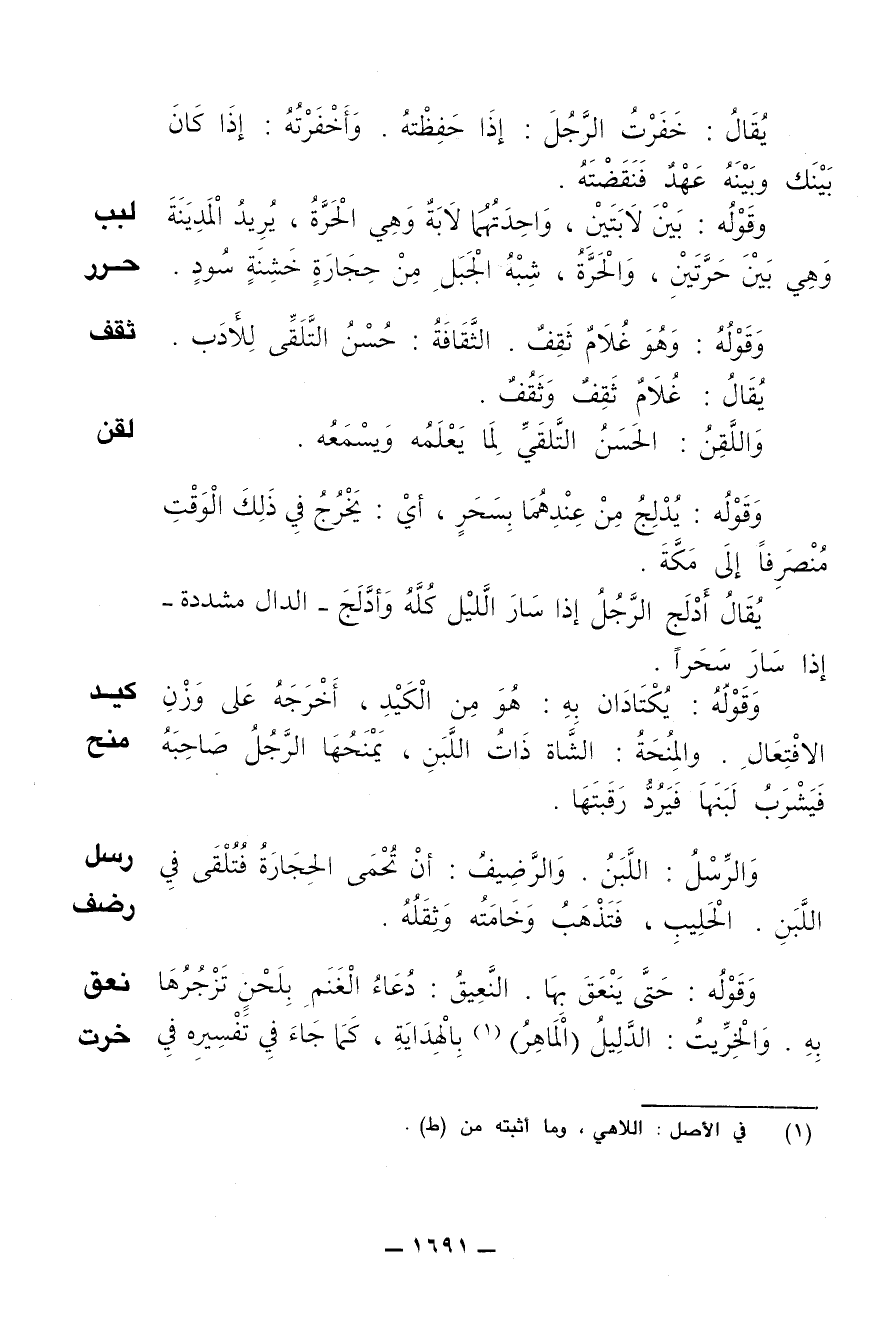 يُقَالُ : خَفَرْتُ الرَّجُلَ : إِذَا حَفِظْتهُ . وَأَخْفَرْتُهُ : إِذَا كَانَ
بَيْنَك وبَيْنَهُ عَهْدٌ فَنَقَضْتَهُ .
وقَوْلُه : بَيْنَ لَابَتَيْنْ ، وَاحِدَتُهُما لَابَةٌ وَهِي الْحَرَّةُ ، يُرِيدُ الْمَدِينَةَ لبب
وَهِي بَيْنَ حَرَّتَيْنِ ، وَالْحَرَّةُ ، شِبْهُ الْجَبَلِ مِنْ حِجَارَةٍ خَشِنَةٍ سُودٍ . حرر
وَقَوْلُهُ : وَهُوَ غُلَامٌ ثَقِفٌ . الثَّقَافَةُ : حُسْنُ التَّلَقِّى لِلْأَدَب . ثقف
يُقَالُ : غُلَامٌ ثَقِفٌ وَثَقُفٌ .
وَاللَّقِنُ : الحَسَنُ التَّلَقيِّ لِمَا يَعْلَمُه وَيسْمَعُه . لقن
وَقَوْلُه : يُدْلِجُ مِنْ عِنْدِهُمَا بِسَحَرٍ ، أيْ : يَخْرُجُ فِي ذَلِكَ الْوَقْتِ
مُنْصَرِفاً إِلَى مَكَّةَ .
يُقَالُ أَدْلَج الرَّجُلُ إذا سَارَ الَّليْل كُلَّهُ وَأدَّلَجَ ـ الدال مشددة ـ
إذا سَارَ سَحَراً .
وَقَوْلُهُ : يُكْتَادَان بِهِ : هُوَ مِن الْكَيْدِ ، أَخْرَجَهُ عَلى وَزْنِ كيد
الافْتِعَالِ . والمِنُحَةُ : الشَّاة ذَاتُ اللَّبَنِ ، يَمْنَحُهَا الرَّجُلُ صَاحِبَهُ منح
فَيَشْرَبُ لَبَنَهَا فَيَرُدُّ رَقَبتَهَا .
وَالرِّسْلُ : اللَّبَنُ . وَالرَّضِيفُ : أنْ تُحْمَى الحِجَارَةُ فَتُلْقَى فِي رسل
اللَّبَنِ . الْحَلِيبِ ، فَتَذْهَبُ وَخَامَتُه وَثِقَلُهُ . رضف
وَقَوْلُه : حَتَّى يَنْعَقَ بِهَا . النَّعِيقُ : دُعَاءُ الْغَنَمِ بِلَحْنٍ تَزْجُرُهَا نعق
بِهِ . وَالْخِرِّيتُ : الدَّلِيلُ (الْمَاهِرُ) (١) بِالْهِدَايَةِ ، كَمَا جَاءَ فِي تَفْسِيرِه فِي خرت
(١) في الأصل : اللاهي ، وما أثبته من (ط) .
ـ ١٦٩١ ـ